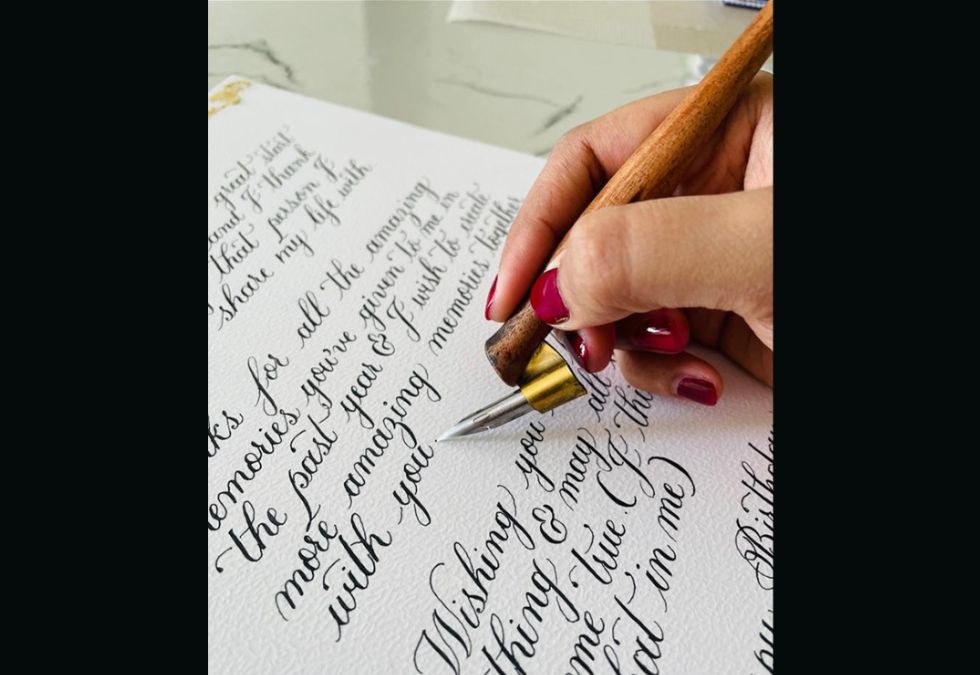 great start
and I thank
that person I
share my life with
ks for all the amazing
emories you've given to me in
the past year & I wish to create
more amazing memories together
with you.
Wishing you
thing & may all
me true. (I thi
hat in me)
Birthday